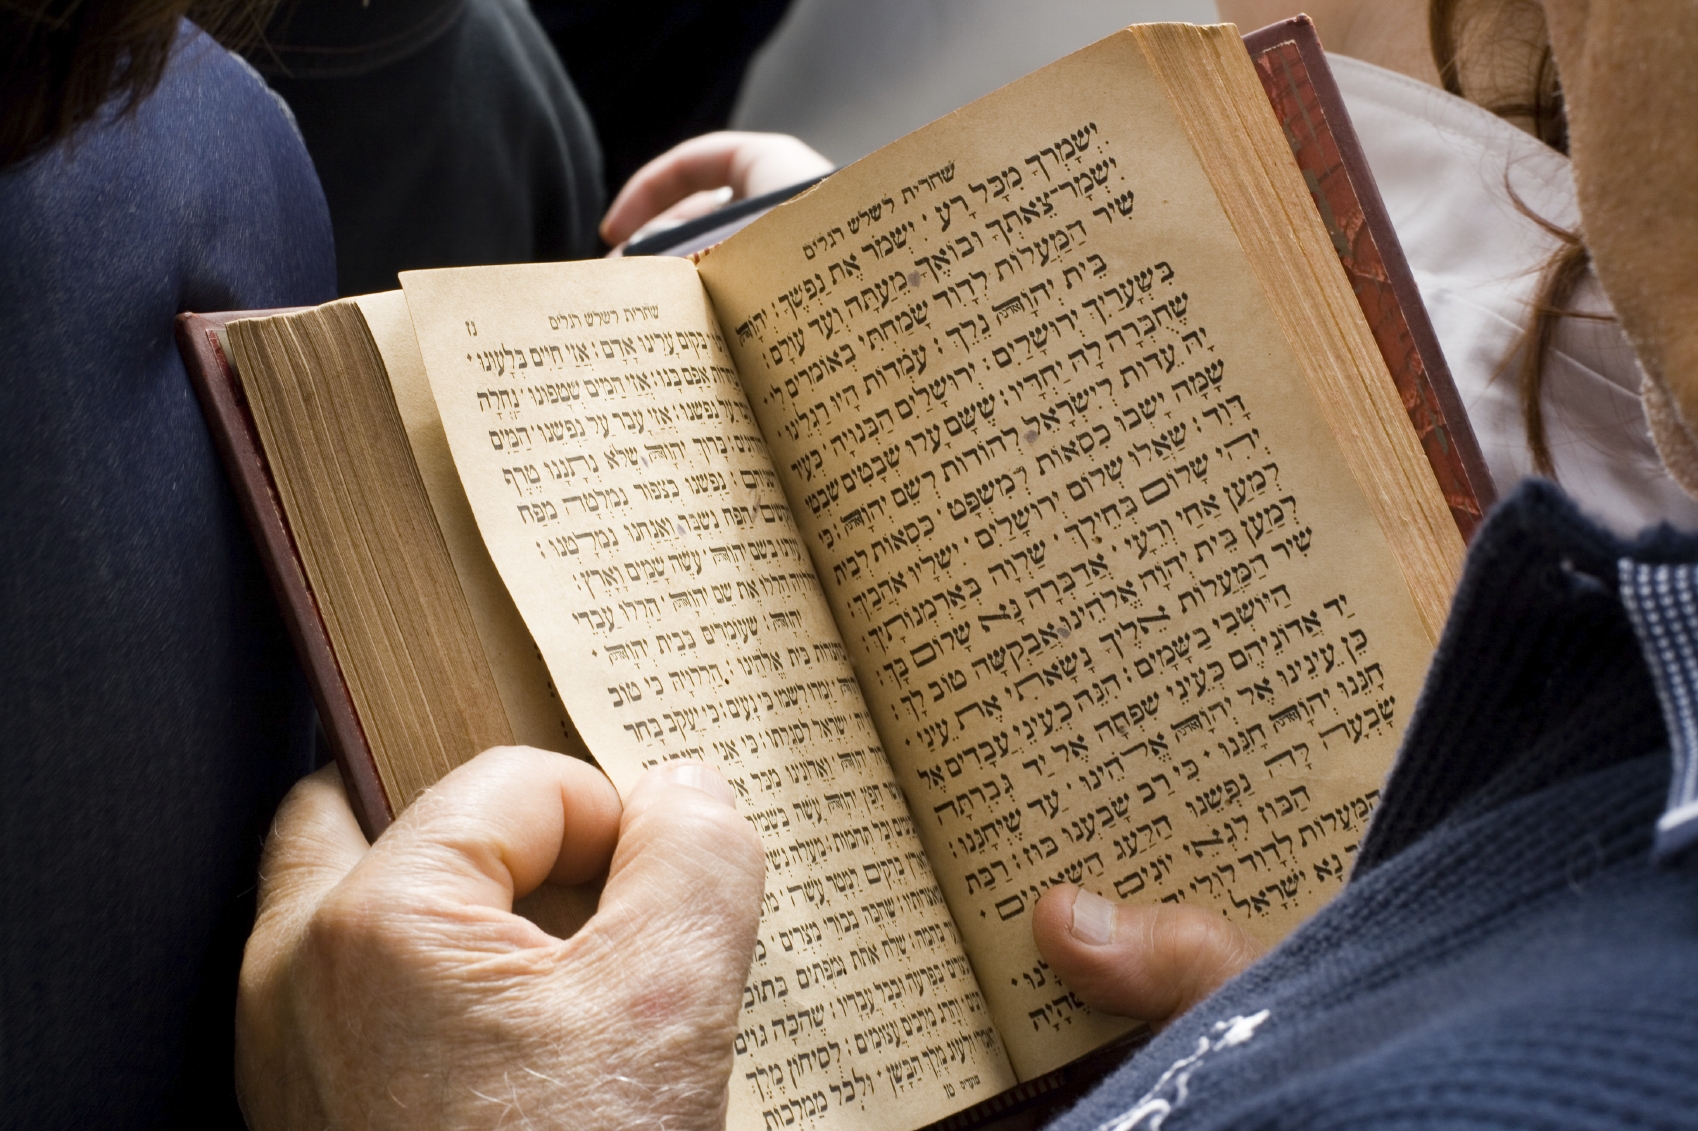 שחרית לשלש רגלים
יִשְׁמָרְךָ מִכָּל רָע · יִשְׁמֹר אֶת נַפְשֶׁךָ : יְהוָֹה
יִשְׁמָר־צֵאתְךָ וּבוֹאֶךָ מֵעַתָּה וְעַד עוֹלָם :
שִׁיר הַמַּעֲלוֹת לְדָוִד שָׂמַחְתִּי בְּאוֹמְרִים לִי ·
בֵּית יְהוָֹה נֵלֵךְ : עֹמְדוֹת הָיוּ רַגְלֵינוּ ·
בִּשְׁעָרַיִךְ יְרוּשָׁלָיִם : יְרוּשָׁלַיִם הַבְּנוּיָה כְּעִיר
שֶׁחֻבְּרָה לָּהּ יַחְדָּיו : שֶׁשָּׁם עָלוּ שְׁבָטִים שִׁבְטֵי
יָהּ עֵדוּת לְיִשְׂרָאֵל לְהוֹדוֹת לְשֵׁם יְהוָֹה : כִּי
שָׁמָּה יָשְׁבוּ כִסְאוֹת לְמִשְׁפָּט · כִּסְאוֹת לְבֵית
דָּוִד : שַׁאֲלוּ שְׁלוֹם יְרוּשָׁלָיִם · יִשְׁלָיוּ אֹהֲבָיִךְ :
יְהִי שָׁלוֹם בְּחֵילֵךְ · שַׁלְוָה בְּאַרְמְנוֹתָיִךְ :
לְמַעַן אַחַי וְרֵעָי · אֲדַבְּרָה נָּא שָׁלוֹם בָּךְ :
לְמַעַן בֵּית יְהוָֹה אֱלֹהֵינוּ אֲבַקְשָׁה טוֹב לָךְ :
שִׁיר הַמַּעֲלוֹת אֵלֶיךָ נָשָׂאתִי אֶת עֵינַי ·
הַיּוֹשְׁבִי בַּשָּׁמָיִם : הִנֵּה כְעֵינֵי עֲבָדִים אֶל
יַד אֲדוֹנֵיהֶם כְּעֵינֵי שִׁפְחָה אֶל יַד גְּבִרְתָּהּ
כֵּן עֵינֵינוּ אֶל יְהוָֹה אֱלֹהֵינוּ · עַד שֶׁיְּחָנֵּנוּ :
חָנֵּנוּ יְהוָֹה חָנֵּנוּ · כִּי רַב שָׂבַעְנוּ בוּז : רַבַּת
שָׂבְעָה לָּהּ נַפְשֵׁנוּ הַלַּעַג הַשַּׁאֲנַנִּים ·
הַבּוּז לִגְאֵי יוֹנִים
הַמַּעֲלוֹת לְדָוִד לוּלֵי
נָא יִשְׂרָאֵל
שֶׁהָיָה
שחרית לשלש רגלים נז
בְּקוּם עָלֵינוּ אָדָם : אֲזַי חַיִּים בְּלָעוּנוּ ·
אַפָּם בָּנוּ : אֲזַי הַמַּיִם שְׁטָפוּנוּ · נַחְלָה
עַל נַפְשֵׁנוּ : אֲזַי עָבַר עַל נַפְשֵׁנוּ הַמַּיִם
בָּרוּךְ יְהוָֹה שֶׁלֹּא נְתָנָנוּ טֶרֶף
נַפְשֵׁנוּ כְּצִפּוֹר נִמְלְטָה מִפַּח
הַפַּח נִשְׁבָּר וַאֲנַחְנוּ נִמְלָטְנוּ :
בְּשֵׁם יְהוָֹה · עֹשֵׂה שָׁמַיִם וָאָרֶץ :
הַלְלוּ אֶת שֵׁם יְהוָֹה · הַלְלוּ עַבְדֵי
יְהוָֹה : שֶׁעוֹמְדִים בְּבֵית יְהוָֹה ·
בֵּית אֱלֹהֵינוּ · הַלְלוּיָהּ כִּי טוֹב
זַמְּרוּ לִשְׁמוֹ כִּי נָעִים : כִּי יַעֲקֹב בָּחַר
יִשְׂרָאֵל לִסְגֻלָּתוֹ : כִּי אֲנִי
יְהוָֹה וַאֲדוֹנֵינוּ מִכָּל
חָפֵץ יְהוָֹה עָשָׂה בַּשָּׁמַיִם
וְכָל תְּהֹמוֹת : מַעֲלֶה
עָשָׂה
שֶׁהִכָּה בְּכוֹרֵי מִצְרָיִם ·
שָׁלַח אֹתוֹת וּמֹפְתִים בְּתוֹכֵכִי
בְּפַרְעֹה וּבְכָל עֲבָדָיו : שֶׁהִכָּה גּוֹיִם
וְהָרַג מְלָכִים עֲצוּמִים : לְסִיחוֹן מֶלֶךְ
וּלְעוֹג מֶלֶךְ הַבָּשָׁן · וּלְכֹל מַמְלְכוֹת